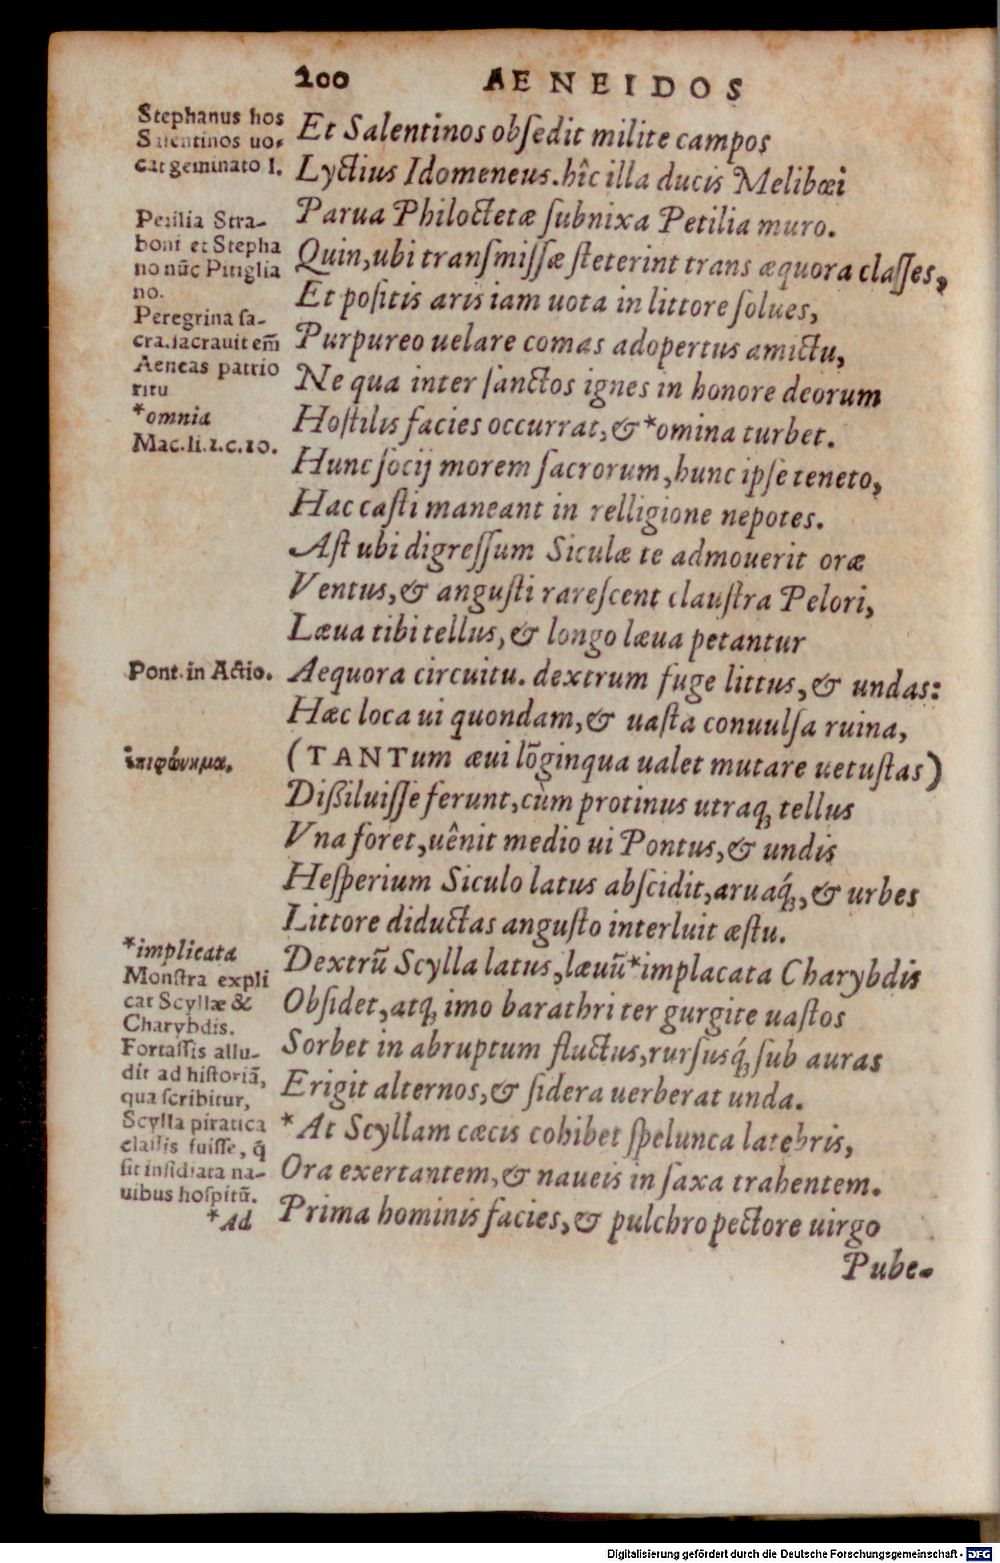 200 AENEIDOS
Stephanus hos
Salentinos uo-
cat geminato l.
Et Salentinos obſedit milite campos
Lyctius Idomeneus. hîc illa ducis Melibœi
Parua Philoctetæ ſubnixa Petilia muro.
Petilia Stra-
boni et Stepha
no nũc Pitiglia
no.
Quin, ubi tranſmiſſæ ſteterint trans æquora claſſes,
Et poſitis aris iam uota in littore ſolues,
Peregrina ſa-
cra. ſacrauit em̃
Aeneas patrio
ritu
Purpureo uelare comas adopertus amictu,
Ne qua inter ſanctos ignes in honore deorum
*omnia
Mac.li.1.c.10.
Hoſtilis facies occurrat, & *omina turbet.
Hunc ſocij morem ſacrorum, hunc ipſe teneto,
Hac caſti maneant in relligione nepotes.
Aſt ubi digreſſum Siculæ te admouerit oræ
Ventus, & anguſti rareſcent clauſtra Pelori,
Læua tibi tellus, & longo læua petantur
Pont. in Actio.
Aequora circuitu. dextrum fuge littus, & undas:
Hæc loca ui quondam, & uaſta conuulſa ruina,
ἐπιφώνημα.
(TANTum æui lõginqua ualet mutare uetuſtas)
Dißiluiſſe ferunt, cùm protinus utraq; tellus
Vna foret, uênit medio ui Pontus, & undis
Heſperium Siculo latus abſcidit, aruaq́;, & urbes
Littore diductas anguſto interluit æſtu.
*implicata
Monſtra expli
cat Scyllæ &
Charybdis.
Dextrũ Scylla latus, læuũ *implacata Charybdis
Obſidet, atq; imo barathri ter gurgite uaſtos
Fortaſſis allu-
dit ad hiſtoriã,
qua ſcribitur,
Scylla piratica
claſſis fuiſſe, q̃
ſit inſidiata na-
uibus hoſpitũ.
*Ad
Sorbet in abruptum fluctus, rurſusq́; ſub auras
Erigit alternos, & ſidera uerberat unda.
*At Scyllam cæcis cohibet ſpelunca latebris,
Ora exertantem, & naueis in ſaxa trahentem.
Prima hominis facies, & pulchro pectore uirgo
Pube-
Digitalisierung gefördert durch die Deutsche Forschungsgemeinschaft - DFG